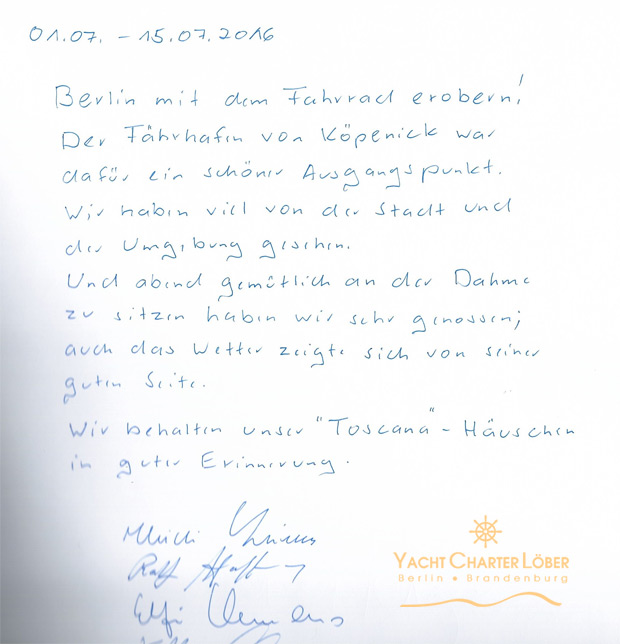 01.07. - 15.07.2016
Berlin mit dem Fahrrad erobern!
Der Fährhafen von Köpenick war
dafür ein schöner Ausgangspunkt.
Wir haben viel von der Stadt und
der Umgebung gesehen.
Und abend gemütlich an der Dahme
zu sitzen haben wir sehr genossen;
auch das Wetter zeigte sich von seiner
guten Seite.
Wir behalten unser "Toscana" - Häuschen
in guter Erinnerung.
Ralf
Elfi Clemens
YACHT CHARTER LÖBER
Berlin • Brandenburg